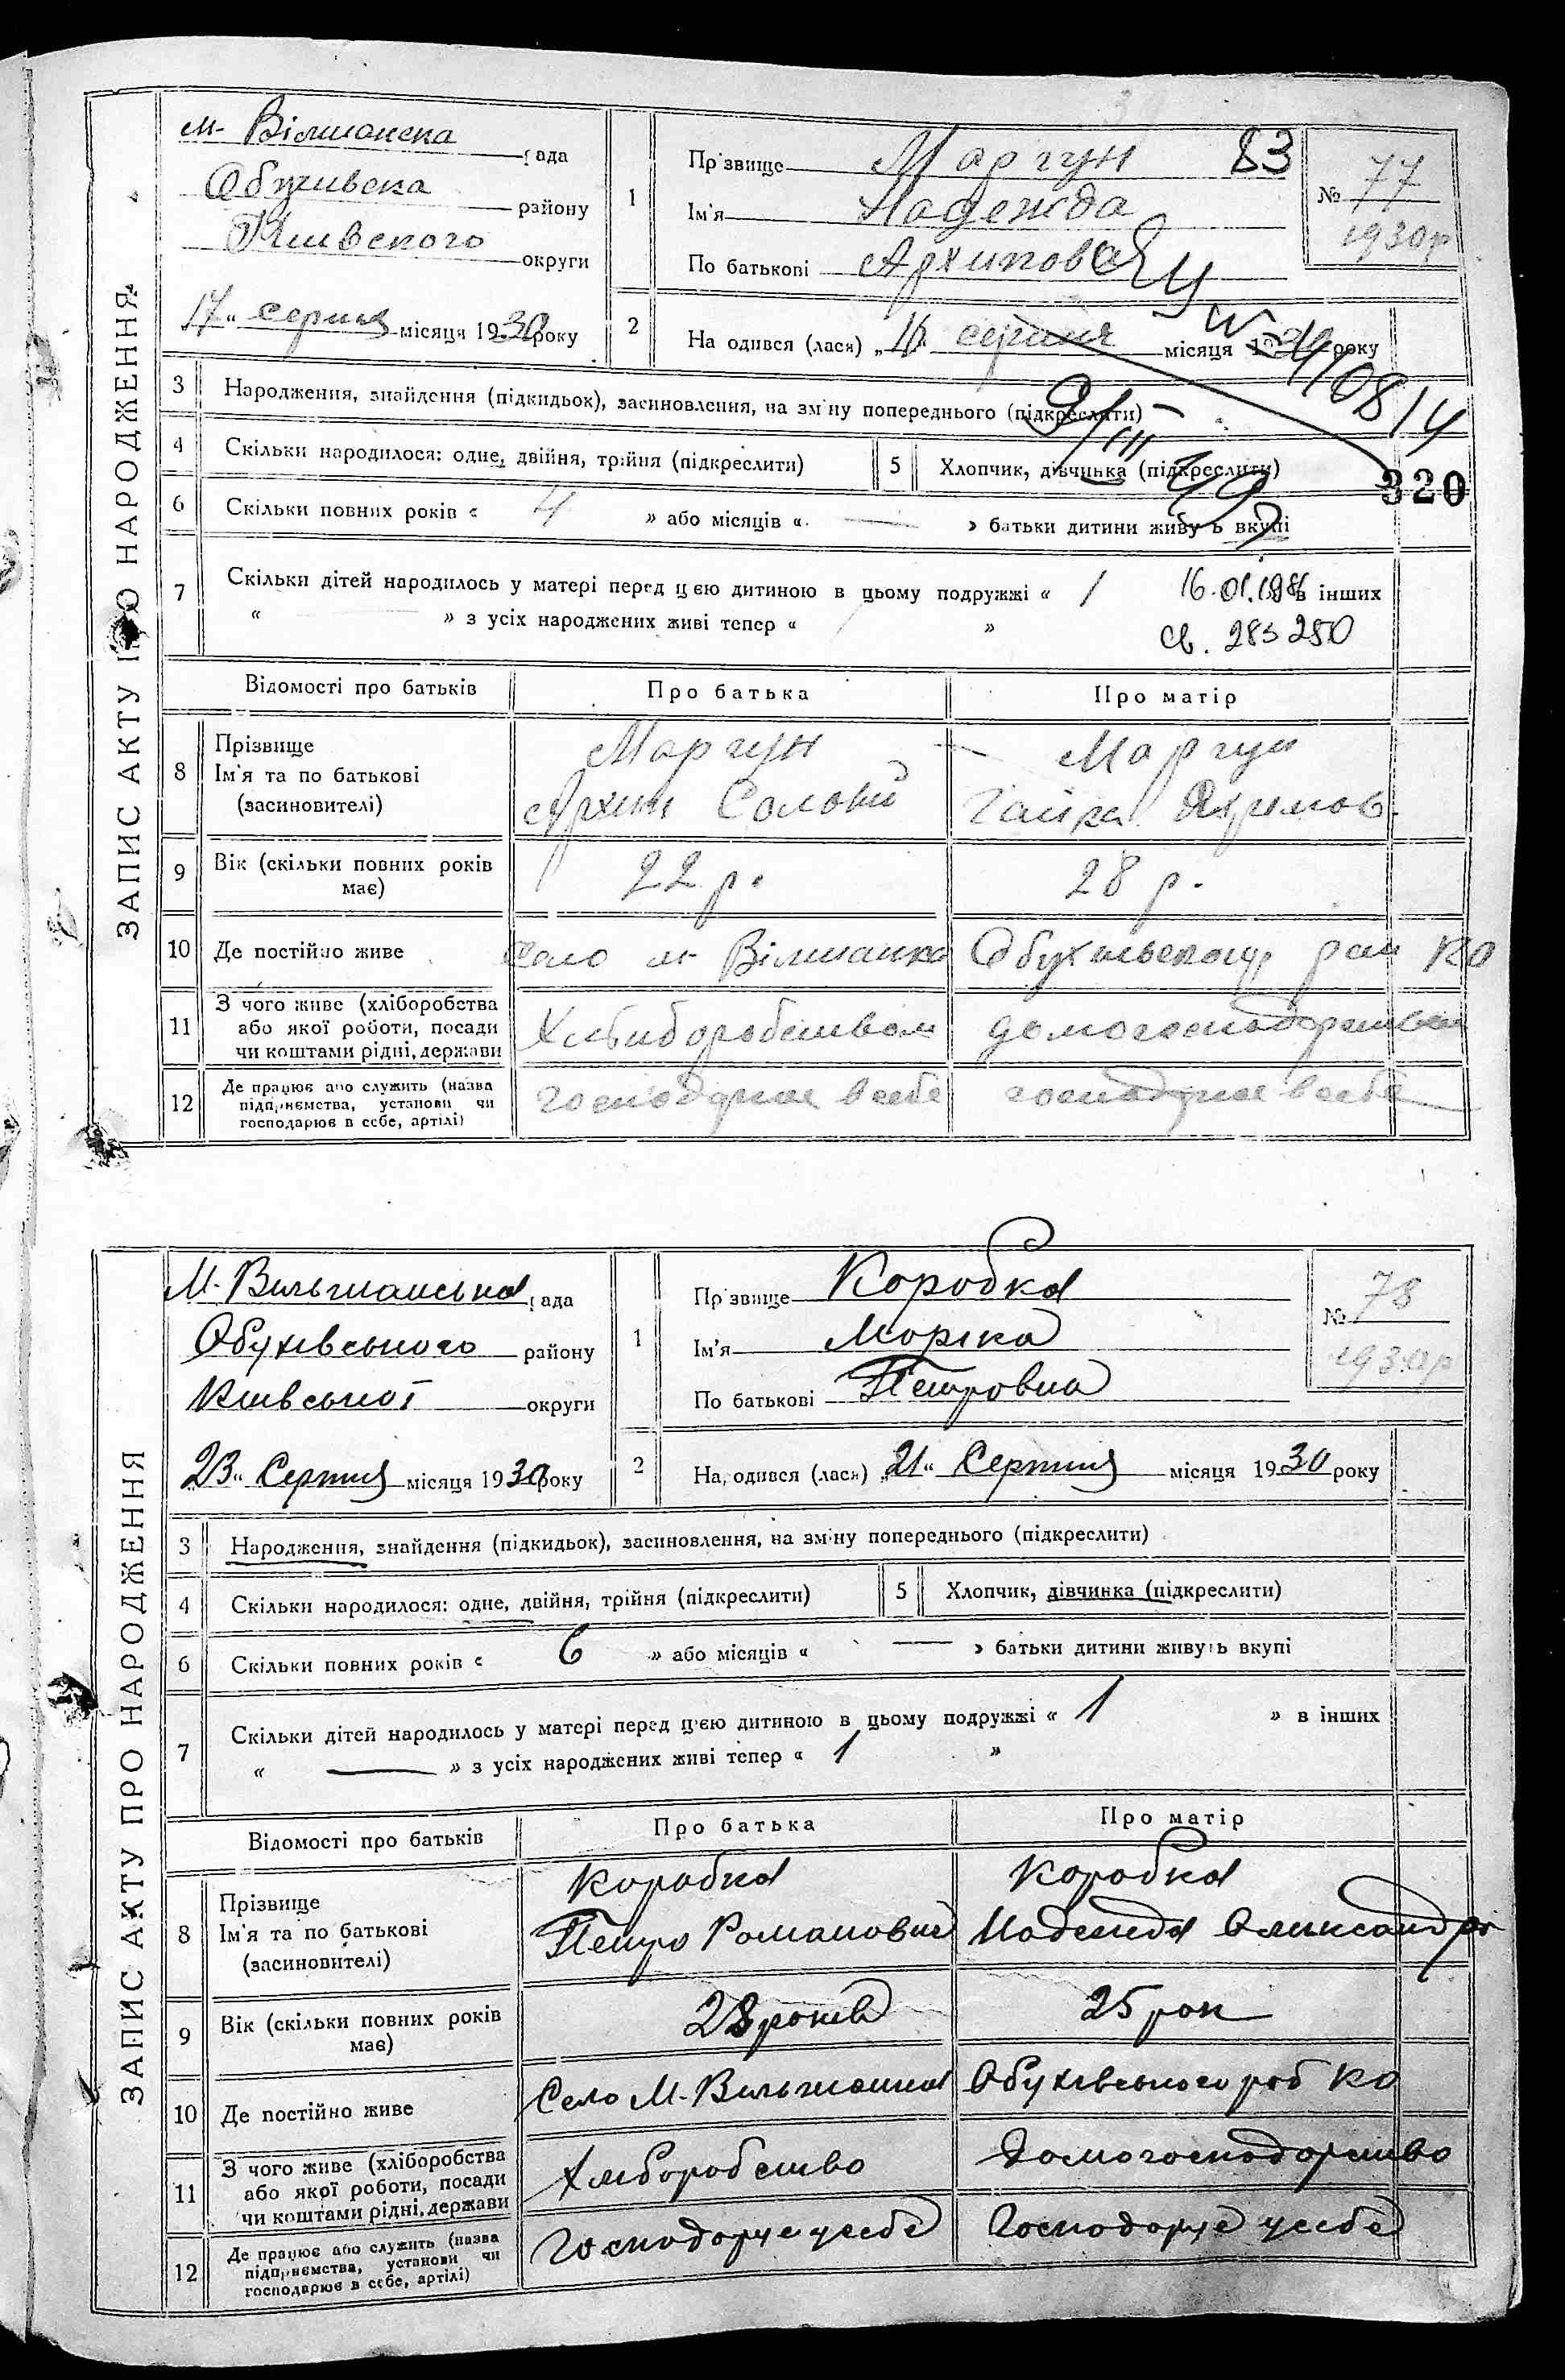 ЗАПИС АКТУ ПРО НАРОДЖЕННЯ
м. Вілшанска рада
Обухивска району
Київского округи
17 " серпня місяця 1930 року
1
Прізвище Моргун 83
Ім'я Надежда
По батькові Архиповна
№ 77
1930р
2
Народився (лася) „ серпня місяця 1930 року
3 Народження, знайдення (підкидьок), засиновлення, на зміну попереднього (підкреслити)
9/III
4 Скільки народилося: одне, двійня, трійня (підкреслити)
5 Хлопчик, дівчинка (підкреслити)
320
6 Скільки повних років « 4 » або місяців « — » батьки дитини живуть вкупі
7 Скільки дітей народилось у матері перед цією дитиною в цьому подружжі « 1 в інших
16.01.1986
« — » з усіх народжених живі тепер « »
св. 283250
Відомості про батьків Про батька Про матір
8 Прізвище
Ім'я та по батькові
(засиновителі)
Моргун
Архип
Моргун
9 Вік (скільки повних років має)
22 р.
28 р.
10 Де постійно живе
Село м. Вілшанка
рай КО
11 З чого живе (хліборобства
або якої роботи, посади
чи коштами рідні, держави
12 Де працює або служить (назва
підприємства, установи чи
господарює в себе, артілі)
ЗАПИС АКТУ ПРО НАРОДЖЕННЯ
М. Вильшанська рада
Обухівського району
Київської округи
23 " Серпня місяця 1930 року
1
Прізвище Коробка
Ім'я Марія
По батькові Петровна
№ 78
1930р
2
Народився (лася) „21" Серпня місяця 1930 року
3 Народження, знайдення (підкидьок), засиновлення, на зміну попереднього (підкреслити)
4 Скільки народилося: одне, двійня, трійня (підкреслити)
5 Хлопчик, дівчинка (підкреслити)
6 Скільки повних років « 6 » або місяців « — » батьки дитини живуть вкупі
7 Скільки дітей народилось у матері перед цією дитиною в цьому подружжі « 1 » в інших
« — » з усіх народжених живі тепер « 1 »
Відомості про батьків Про батька Про матір
8 Прізвище
Ім'я та по батькові
(засиновителі)
Коробка
Петро Романович
Коробка
Надежда Олександр
9 Вік (скільки повних років має)
28 років
25 рок
10 Де постійно живе
Село М. Вильшанка
Обухівського КО
11 З чого живе (хліборобства
або якої роботи, посади
чи коштами рідні, держави
Хліборобство
Домогосподорство
12 Де працює або служить (назва
підприємства, установи чи
господарює в себе, артілі)
Господорує усебе
Господорує усебе